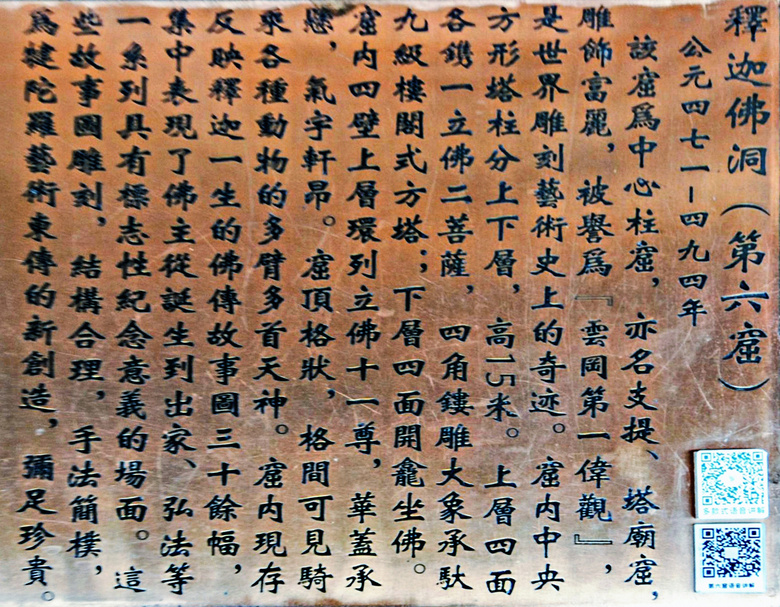 釋迦佛洞（第六窟）
公元四七一–四九四年
該窟爲中心柱窟，亦名支提、塔廟窟，
雕飾富麗，被譽爲『雲岡第一偉觀』，
是世界雕刻藝術史上的奇迹。窟内中央
方形塔柱分上下層，高15米。上層四面
各鐫一立佛二菩薩，四角鏤雕大象承馱
九級樓閣式方塔；下層四面開龕坐佛。
窟内四壁上層環列立佛十一尊，華蓋承
懸，氣宇軒昂。窟頂格狀，格間可見騎
乘各種動物的多臂多首天神。窟内現存
反映釋迦一生的佛傳故事圖三十餘幅，
集中表現了佛主從誕生到出家、弘法等
一系列具有標志性紀念意義的場面。這
些故事圖雕刻，結構合理，手法簡樸，
爲犍陀羅藝術東傳的新創造，彌足珍貴。
多款式语音讲解
第六窟语音讲解